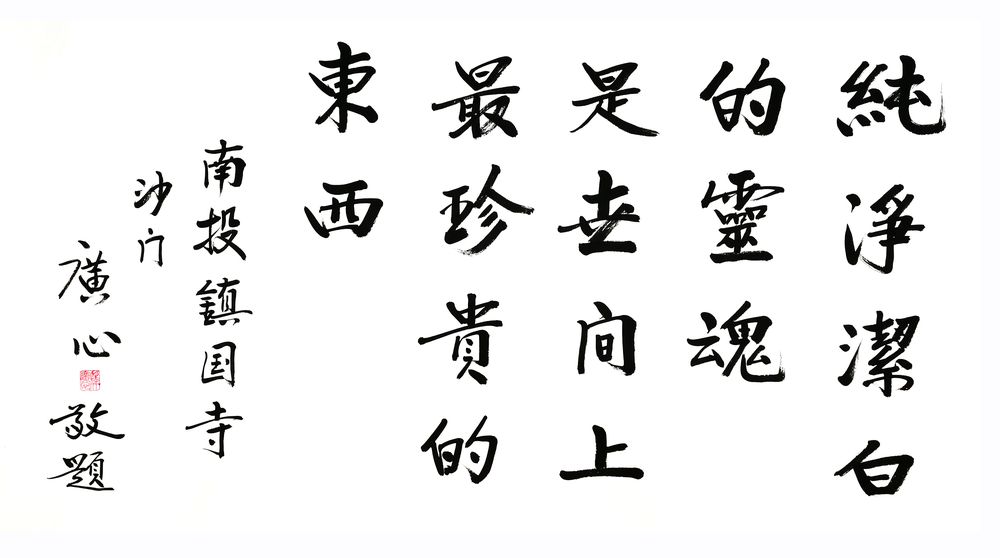 純淨潔白
的靈魂
是世间上
最珍貴的
東西
南投鎮国寺
沙门
廣心
敬題